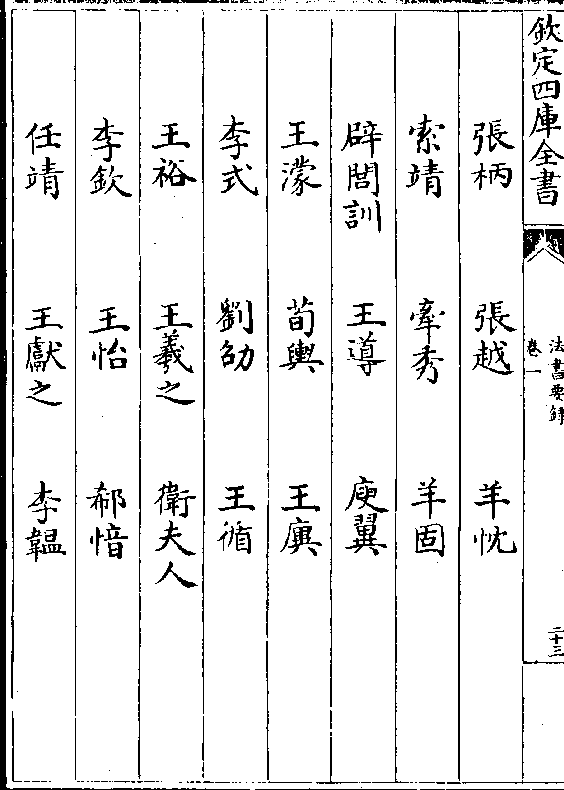 欽定四庫全書
法書要録
卷一
二十三
張柄 張越 羊忱
索靖 牽秀 羊固
辟閭訓 王導 庾翼
王濛 荀輿 王廙
李式 劉劭 王循
王裕 王羲之 衛夫人
李欽 王怡 郗愔
任靖 王獻之 李韞